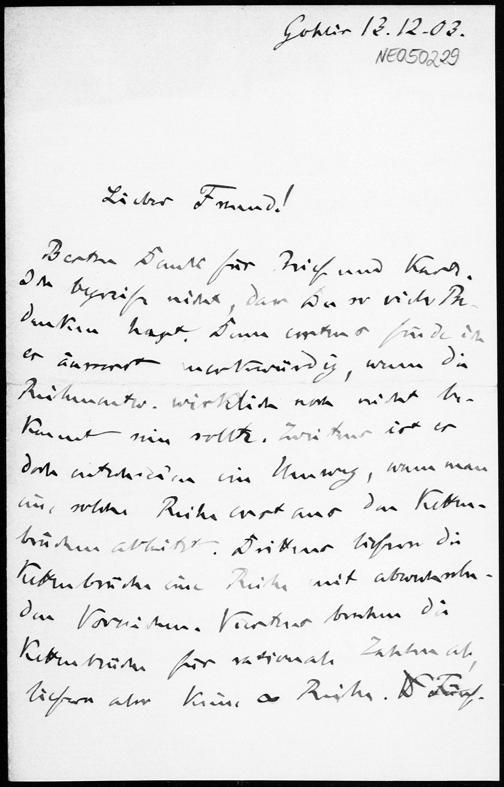 Gohlis 13.12.03.
NE050229
Lieber Freund!
Besten Dank für Brief und Karte.
Ich begreife nicht, dass Du so viele Be-
denken hegst. Denn erstens finde ich
es äusserst merkwürdig, wenn die
wirklich noch nicht be-
kannt sein sollte. Zweitens ist es
doch entschieden ein Umweg, wenn man
eine solche Reihe erst aus den Ketten-
brüchen ableitet. Drittens liefern die
Kettenbrüche eine Reihe mit abwechseln-
den Vorzeichen. Viertens brechen die
Kettenbrüche für rationale Zahlen ab,
liefern also keine ∞ Reihe. Fünf-